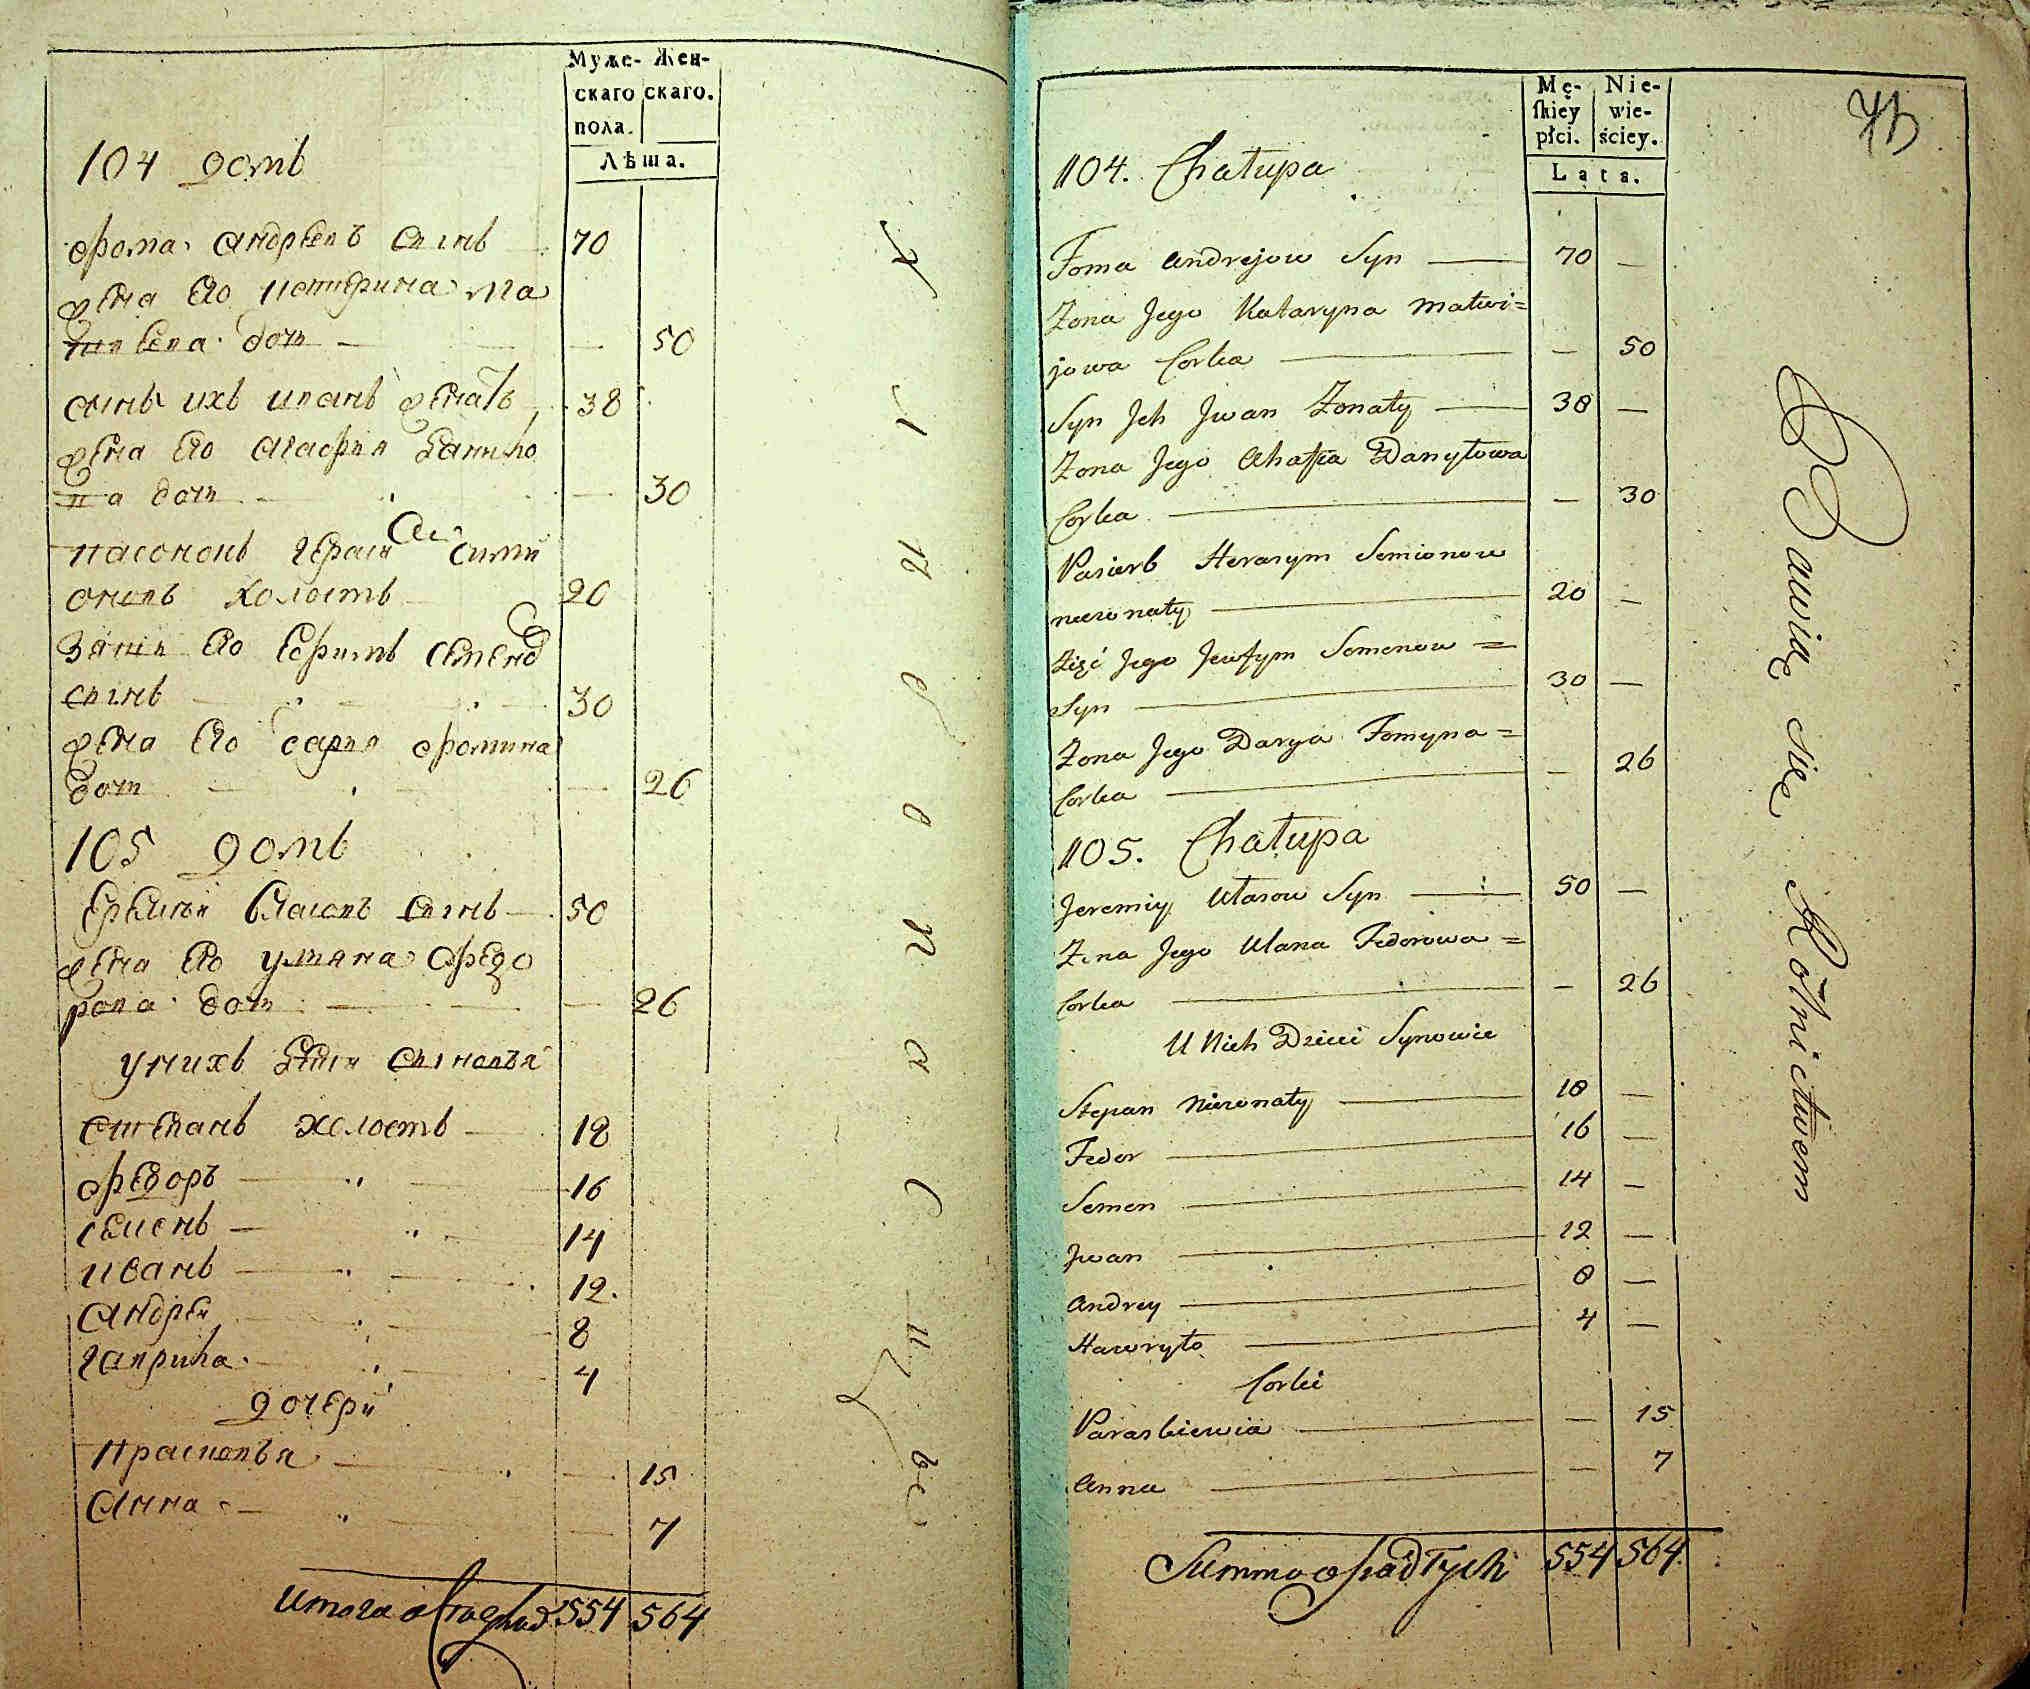 Муже- Жен-
скаго скаго.
пола.
Лѣта.
104 домъ
Фома Андреевъ сынъ 70
жена Его катерина Ма
твеева дочь — — 50
сынъ ихъ иванъ женатъ 38
жена Его агафия Данило
ва дочь — — 30
пасонокъ герасимъ Сими
оновъ холостъ 20
зять Его Ефимъ Семено
сынъ — 30
жена Его Дария Фомина
дочь — — 26
105 домъ
Еремѣй Власовъ сынъ — 50
жена Его улияна Федо
рова дочь — — 26
у нихъ дѣти сыновья
степанъ холостъ — 18
Федоръ — 16
семенъ — 14
иванъ — 12.
Андрей 8
гаврила 4
дочери
Прасковья — — 15
Анна — — 7
554 564
Mę- Nie-
skiey wie-
płci. ściey.
Lata.
104. Chałupa
Foma Andrejow Syn — 70 —
Żona Jego Kataryna Matwi=
jowa Corka — — 50
Syn Jch Jwan Żonaty — 38 —
Żona Jego Ahafia Danyłowa
Corka — — 30
Pasierb Herasym Semionow
nieżonaty — 20 —
Zięć Jego Jewfym Semenow =
Syn — 30 —
Żona Jego Darya Fomyna =
Corka — — 26
105. Chałupa
Jeremiy Własow Syn — 50 —
Żona Jego Ulana Fedorowa =
Corka — — 26
U Nich Dzieci Synowie
Stepan Nieżonaty — 18 —
Fedor — 16 —
Semen — 14 —
Jwan — 12 —
Andrey — 8 —
Hawryło — 4 —
Corki
Paraskiewia — — 15
Anna — — 7
Summa osiadłych 554 564.
Bawią się Rolnictwem